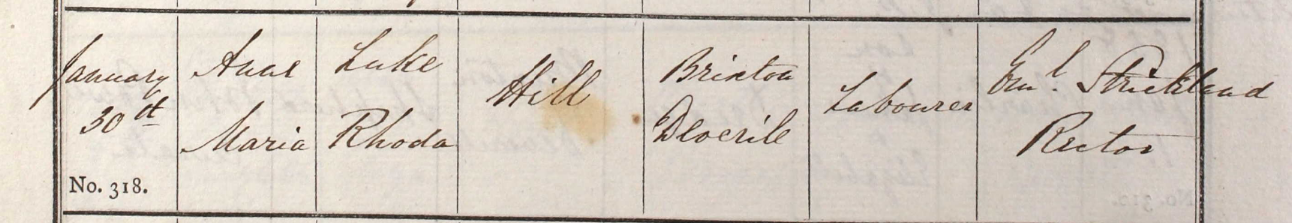 January
30th
No. 318.
Anne
Maria
Luke
Rhoda
Hill
Brixton
Deverile
Labourer
Eml. Strickland
Rector